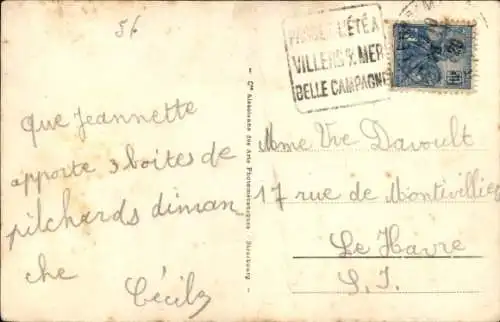 56
Que Jeannette
apporte 3 boîtes de
pilchards diman
che
Cécile
Cie Alsacienne des Arts Photomécaniques - Strasbourg
PASSEZ L'ÉTÉ A
VILLERS S/ MER
BELLE CAMPAGNE
Mme Vve Davoult
17 rue de Montivilliers
Le Havre
S. I.